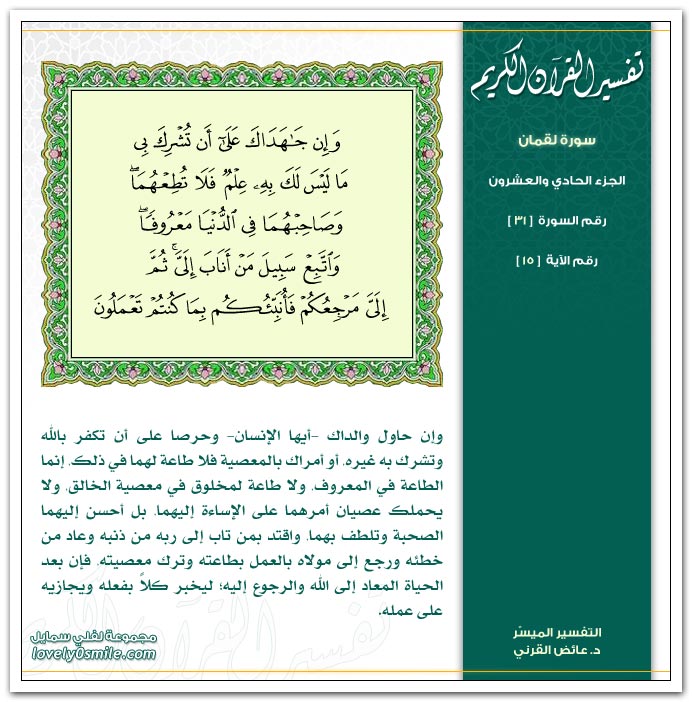 تفسير القرآن الكريم
سورة لقمان
الجزء الحادي والعشرون
رقم السورة [ ٣١ ]
رقم الآية [ ١٥ ]
وَإِن جَـٰهَدَاكَ عَلَىٰٓ أَن تُشْرِكَ بِى
مَا لَيْسَ لَكَ بِهِۦ عِلْمٌ فَلَا تُطِعْهُمَا ۖ
وَصَاحِبْهُمَا فِى ٱلدُّنْيَا مَعْرُوفًا ۖ
وَٱتَّبِعْ سَبِيلَ مَنْ أَنَابَ إِلَىَّ ۚ ثُمَّ
إِلَىَّ مَرْجِعُكُمْ فَأُنَبِّئُكُم بِمَا كُنتُمْ تَعْمَلُونَ
وإن حاول والداك -أيها الإنسان- وحرصا على أن تكفر بالله
وتشرك به غيره، أو أمراك بالمعصية فلا طاعة لهما في ذلك، إنما
الطاعة في المعروف، ولا طاعة لمخلوق في معصية الخالق، ولا
يحملك عصيان أمرهما على الإساءة إليهما، بل أحسن إليهما
الصحبة وتلطف بهما، واقتد بمن تاب إلى ربه من ذنبه وعاد من
خطئه ورجع إلى مولاه بالعمل بطاعته وترك معصيته، فإن بعد
الحياة المعاد إلى الله والرجوع إليه؛ ليخبر كلاً بفعله ويجازيه
على عمله.
التفسير الميسّر
د. عائض القرني
مجموعة لفلي سمايل
lovely0smile.com